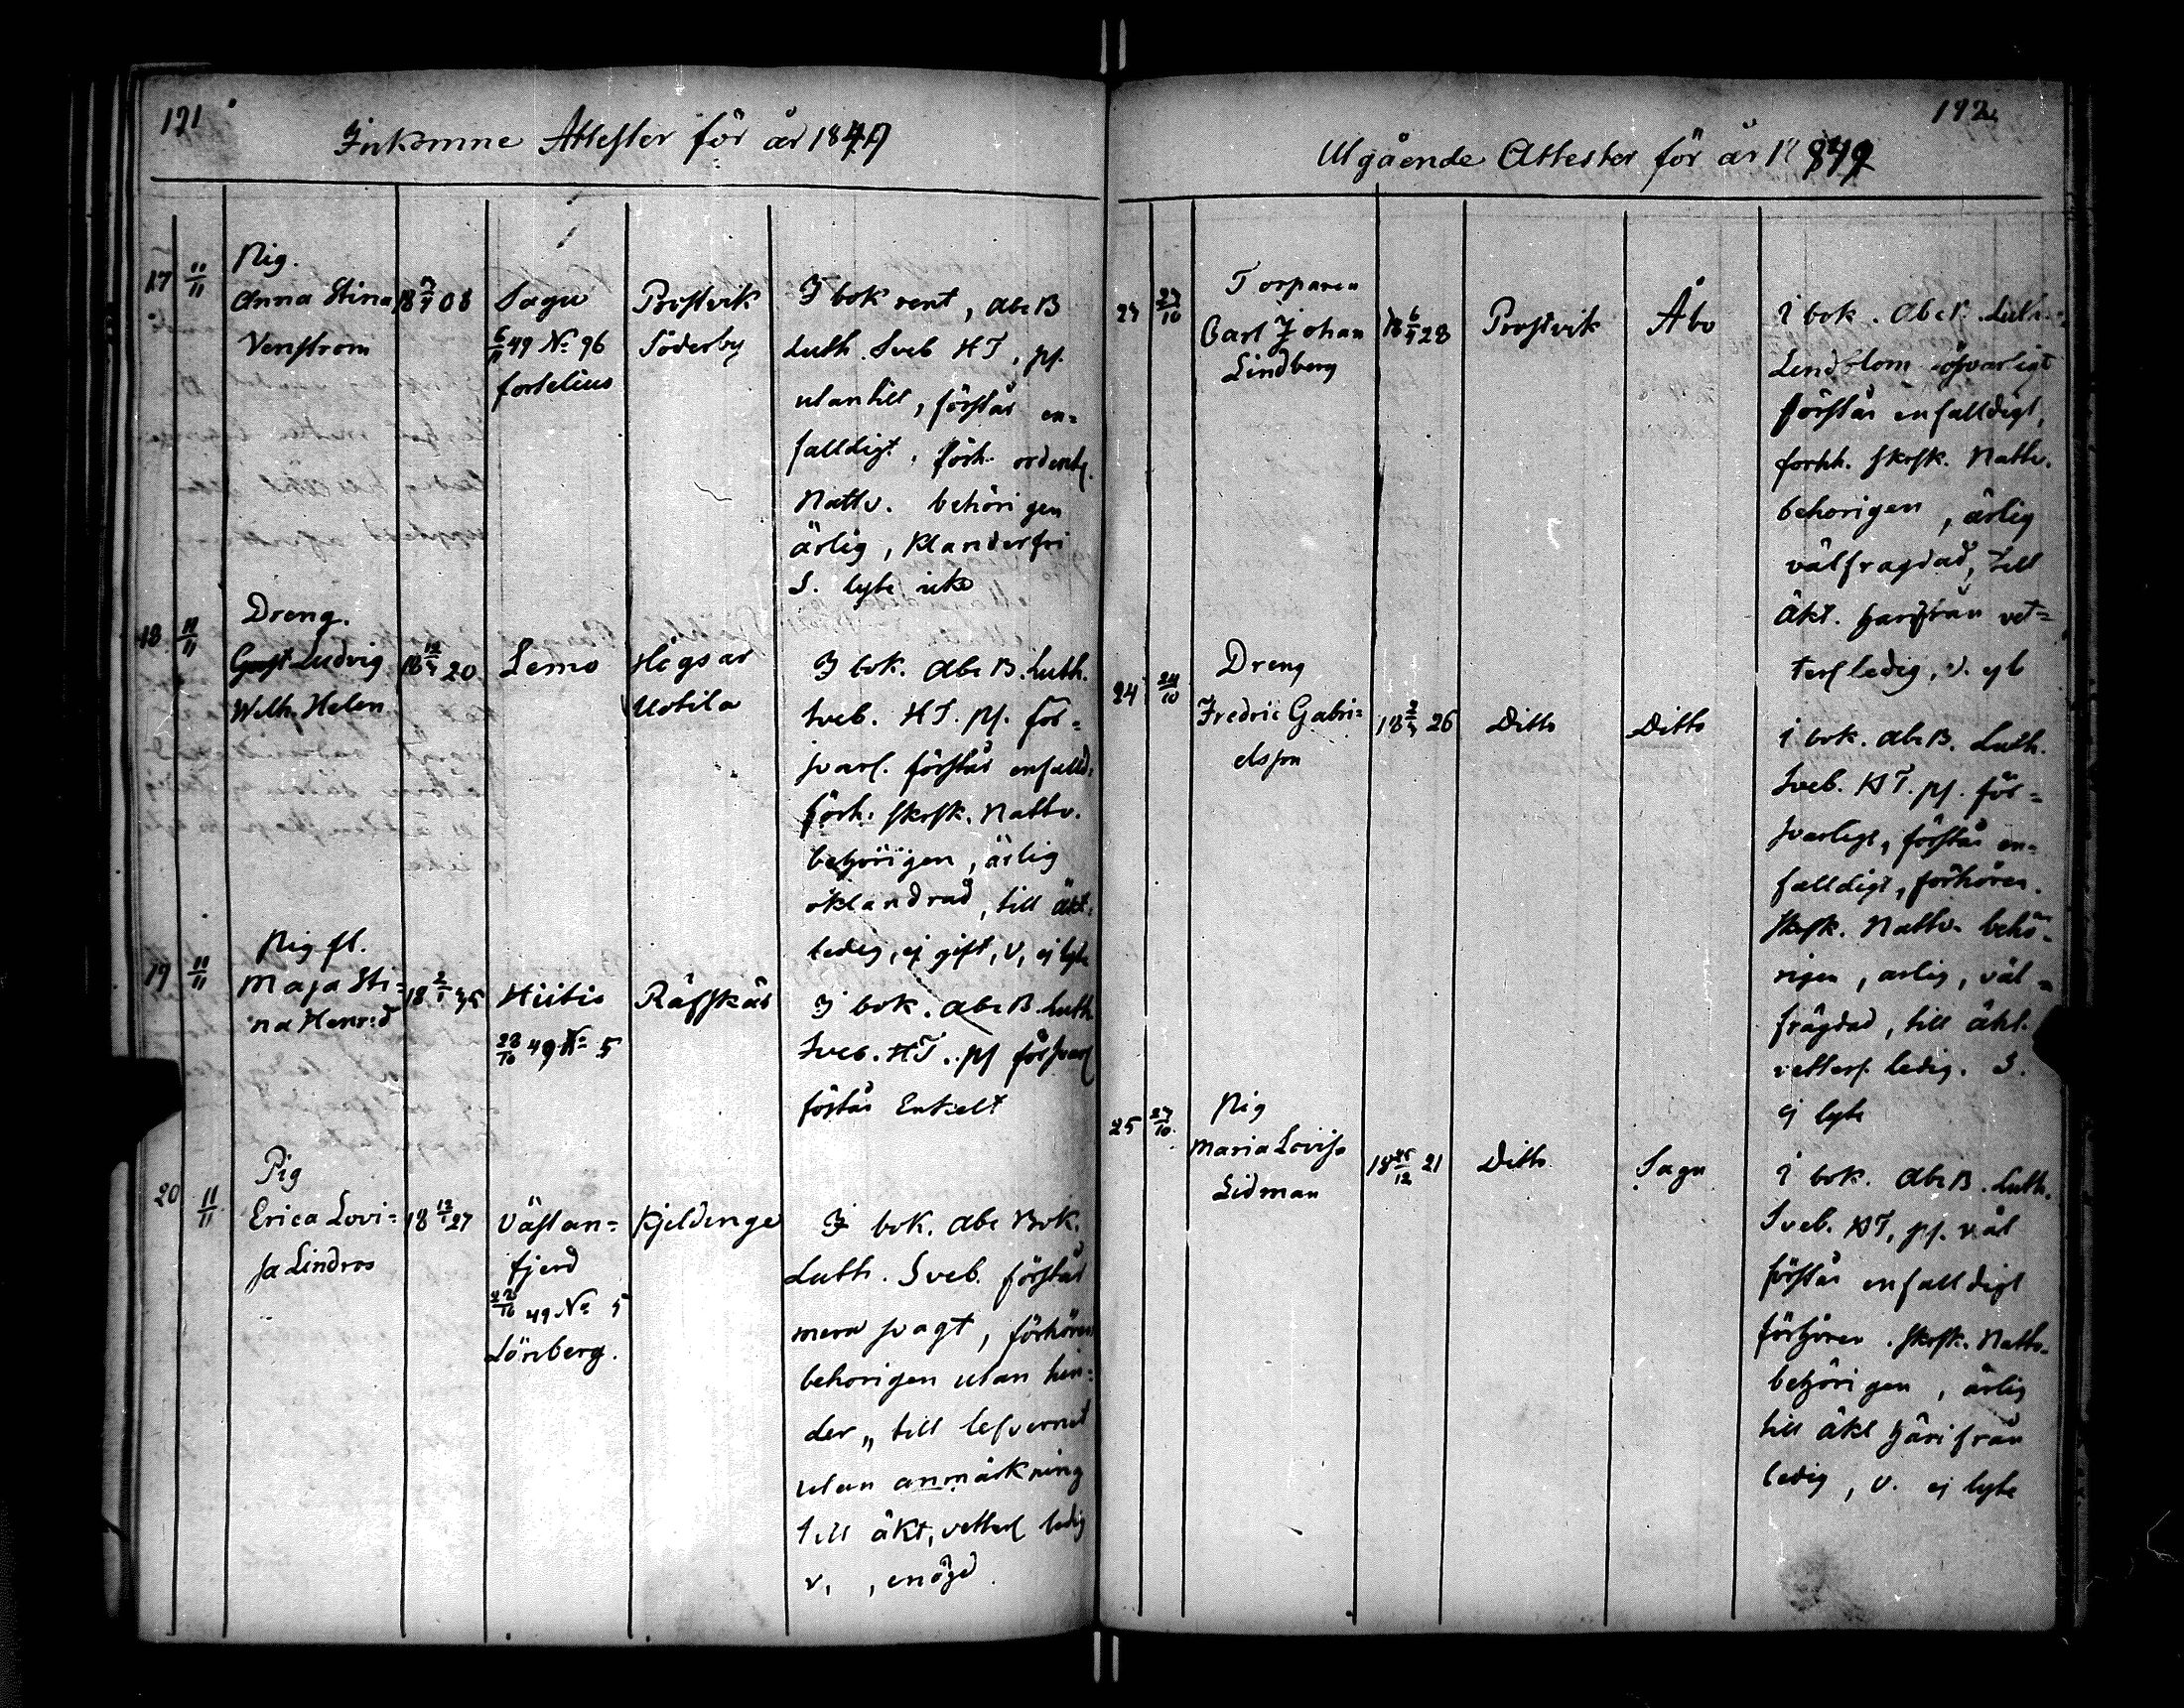 191
Inkomne Attester för år 1849
17 11/11
Pig.
Anna Stina
Venstrom
18 7/9 08
Sagu
6/11 49 No 96
forselius
Prostvik
Söderby
I bok rent, Abc B
Luth. Sveb HT, ps.
utantill, förstår en=
falldigt, förh. ordentl.
Nattv. behörigen
ärlig, klanderfri
S. lyte icke
18 11/11
Dreng.
Gust Ludvig
Wilh. Helen
20
Lemo
Högsar
Uotila
I bok. Abc B. Luth.
Sveb. HT. ps. för=
svarl. förstår enfalld=
förh. skrsk. Nattv.
behörigen, ärlig
oklandrad, till äkt.
ledig, ej gift, v, ej lyte
19 11/11
Pig fl.
Maja Sti=
na Henr:d
18 2/1 35
Hiitis
28/10 49 No 5
Räfskär
I bok. Abc B. Luth.
Sveb. HT. ps försvarl
förstår Enkelt
20 11/11
Pig
Erica Lovi=
sa Lindros
18 12/1 27
Västan=
fjerd
49 No 5
Lönberg.
Kjeldinge
I bok. Abc Bok.
Luth. Sveb. förstår
mera svagt, förhören
behorigen utan hin=
der „ till lefvernet
utan anmärkning
till äkt, vetterl ledig
v, , enögd.
192
Utgående Attester för år 1849
23 23/10
Torparen
Carl Johan
Lindberg
18 6/9 28
Prostvik
Åbo
I bok. Abc B. Luth.
Lindblom försvarligt
förstår enfalldigt,
forhh. skrsk. Nattv.
behorigen, ärlig
välfragdad, till
äkt. härifrån vet=
terl ledig, v. ej l
24 24/10
Dreng
Fredric Gabri=
elsson
26
Ditto
Ditto
I bok. Abc B. Luth.
Sveb. HT. ps. för=
svarligt, förstår en=
falldigt, förhören.
skrsk. Nattv. behö=
rigen, arlig, väl=
frägdad, till äkt.
vetterl. ledig. S.
ej lyte
25 27/10
Pig
Maria Lovisa
Lidman
18 25/12 21
Ditto
Sagu
I bok. Abc B. Luth.
Sveb. HT, ps. väl
förstår enfalldigt
förhören. skrsk. Nattv.
behörigen, ärlig
till äkt härifrån
ledig, v. ej lyte